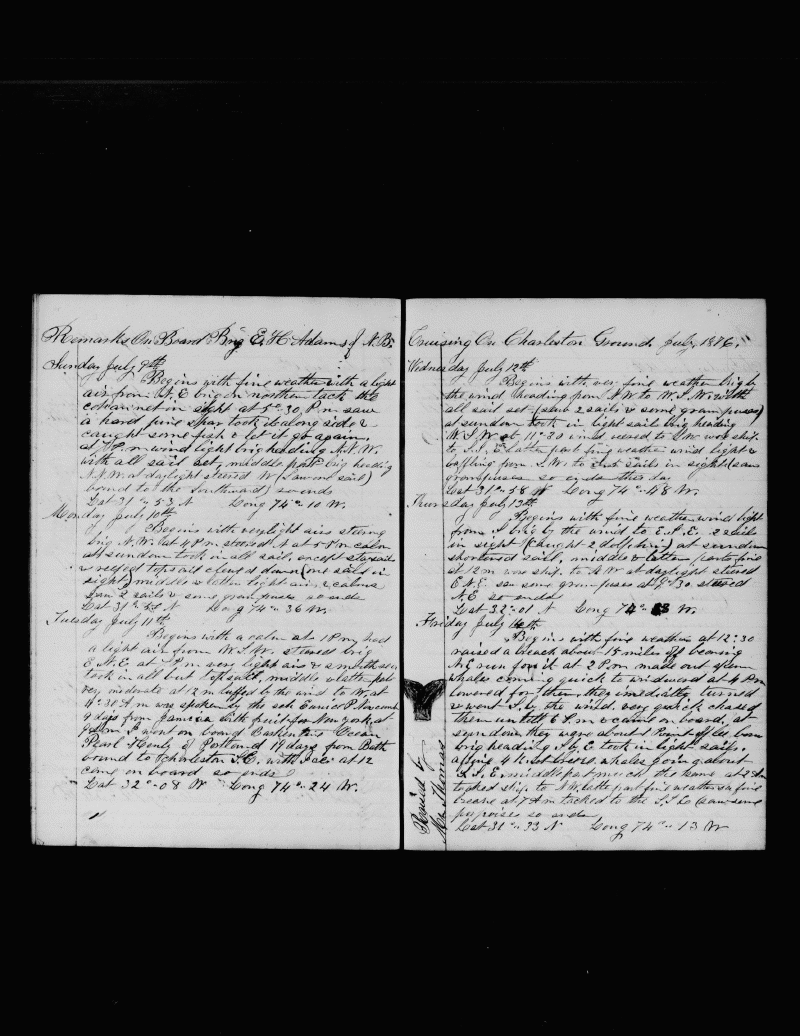 Remarks On Board Brig E. H. Adams of N.B.
Sunday July 9th
Begins with fine weather with a light
air from N.E brig on northern tack the
in sight at 5-30 P.m saw
a hard pine spar took it along side &
caught some fish & let it go again,
at wind light brig heading N.N.W.
with all sail set, middle part brig heading
N.N.W. at daylight steered W (saw one sail)
bound to the Southward) so ends
Lat 31°-53 N Long 74°-10 W.
Monday July 10th
Begins with very light airs steering
brig N.W. at 4 P.m. steered N at 5 P.m calm
at sundown took in all sail, except staysails
& reefed topsail & clewed down (one sail in
sight) middle & latter light airs & calms
saw 2 sails & some grampuses so ends
Lat 31°-52 N Long 74°-36 W.
Tuesday July 11th
Begins with a calm at 1 P.m, had
a light air from W.S.W. steered brig
E.N.E. at 7 P.m very light air & smooth sea,
took in all but topsail, middle & latter part
very moderate at 12 m luffed by the wind to W, at
4-30 A.m was spoken by the sch Eunice P Newcomb
9 days from Jamica with fruit for New York, at
9 A.m I went on board Barkentine Ocean
Pearl Henly of Portland 19 days from Bath
bound to Charleston S.C. with Ice at 12
came on board so ends
Lat 32°-08 N Long 74°-24 W.
Cruising On Charleston Ground July, 1876.
Wednesday July 12th
Begins with very fine weather brig by
the wind heading from N.W to W.S.W. with
all sail set (saw 2 sails & some grampuses)
at sundown took in light sails brig heading
W.S.W at 11-30 wind veered to S.W. wore ship
to S.S.E. latter part fine weather wind light &
baffling from S.W. to sails in sight (saw
grampuses so ends this day
Lat 31°-58 N Long 74°-48 W.
Thursday July 13th
Begins with fine weather wind light
from S. brig by the wind to E.S.E. 2 sails
in sight (Caught 2 dolphins) at sundown
shortened sail, middle & latter parts fine
at 12 m wore ship to S.W at daylight steered
E.N.E. saw some grampuses at 9-30 steered
N.E. so ends
Lat 32°-01 N Long 74°- W.
Friday July 14th
Begins with fine weather at 12-30
raised a breach about 15 miles off bearing
N.E run for it at 2 P.m made out sperm
whales coming quick to windward at 4 P.m
lowered for them, they imediatly turned
& went S. by the wind, very quick, chased
them untill 6 P.m & came on board, at
sundown they were about 1 Run off lee bow
brig heading S by E took in light sails,
whales going about
S.S.E. middle part much the same at 2 A.m
tacked ship. to N.W. latter part fine weather & fine
breeze at 7 A.m tacked to the S.S.E (saw some
porpoises so ends
Lat 31°-33 N Long 74°-13 W
Raised by
Mr. Thomas